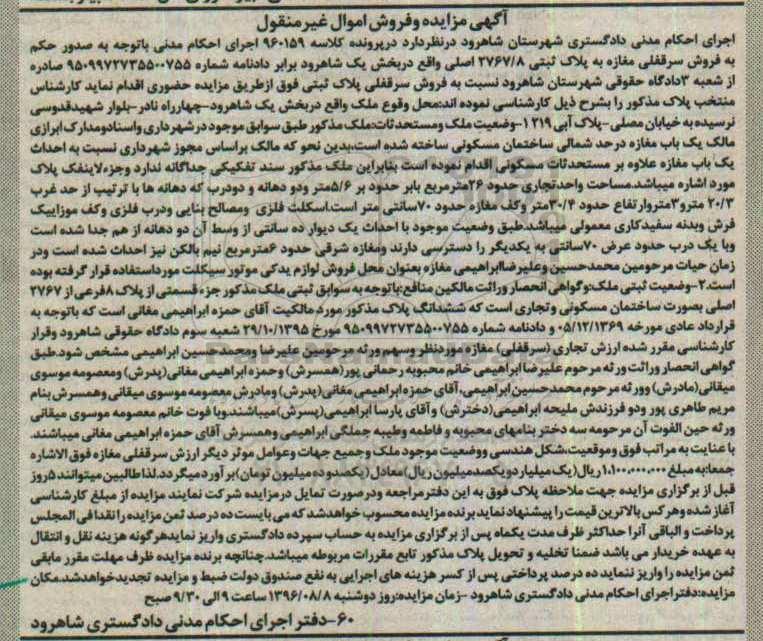 آگهی مزایده وفروش اموال غیرمنقول
اجرای احکام مدنی دادگستری شهرستان شاهرود درنظردارد درپرونده کلاسه ۹۶۰۱۵۹ اجرای احکام مدنی باتوجه به صدور حکم
به فروش سرقفلی مغازه به پلاک ثبتی ۲۷۶۷/۸ اصلی واقع دربخش یک شاهرود برابر دادنامه شماره ۹۵۰۹۹۷۲۷۳۵۵۰۰۷۵۵ صادره
از شعبه ۳دادگاه حقوقی شهرستان شاهرود نسبت به فروش سرقفلی پلاک ثبتی فوق ازطریق مزایده حضوری اقدام نماید کارشناس
منتخب پلاک مذکور را بشرح ذیل کارشناسی نموده اند:محل وقوع ملک واقع دربخش یک شاهرود-چهارراه نادر-بلوار شهیدقدوسی
نرسیده به خیابان مصلی-پلاک آبی ۲۱۹ ۱-وضعیت ملک ومستحدثات:ملک مذکور طبق سوابق موجود درشهرداری واسنادومدارک ابرازی
مالک یک باب مغازه درحد شمالی ساختمان مسکونی ساخته شده است،بدین نحو که مالک براساس مجوز شهرداری نسبت به احداث
یک باب مغازه علاوه بر مستحدثات مسکونی اقدام نموده است بنابراین ملک مذکور سند تفکیکی جداگانه ندارد وجزءلاینفک پلاک
مورد اشاره میباشد.مساحت واحدتجاری حدود ۲۶مترمربع بابر حدود بر ۵/۶متر ودو دهانه و دودرب که دهانه ها با ترتیب از حد غرب
۲۰/۳ مترو۳متروارتفاع حدود ۳۰/۴متر وکف مغازه حدود ۷۰سانتی متر است.اسکلت فلزی ومصالح بنایی ودرب فلزی وکف موزاییک
فرش وبدنه سفیدکاری معمولی میباشد.طبق وضعیت موجود با احداث یک دیوار ده سانتی از وسط آن دو دهانه از هم جدا شده است
وبا یک درب حدود عرض ۷۰سانتی به یکدیگر را دسترسی دارند ومغازه شرقی حدود ۶مترمربع نیم بالکن نیز احداث شده است ودر
زمان حیات مرحومین محمدحسین وعلیرضاابراهیمی مغازه بعنوان محل فروش لوازم یدکی موتور سیکلت مورداستفاده قرار گرفته بوده
است.۲-وضعیت ثبتی ملک:وگواهی انحصار وراثت مالکین منافع:باتوجه به سوابق ثبتی ملک مذکور جزء قسمتی از پلاک ۸فرعی از ۲۷۶۷
اصلی بصورت ساختمان مسکونی وتجاری است که ششدانگ پلاک مذکور مورد مالکیت آقای حمزه ابراهیمی مغانی است که باتوجه به
قرارداد عادی مورخه ۰۵/۱۲/۱۳۶۹ و دادنامه شماره ۹۵۰۹۹۷۲۷۳۵۵۰۰۷۵۵ مورخ ۲۹/۱۰/۱۳۹۵ شعبه سوم دادگاه حقوقی شاهرود وقرار
کارشناسی مقرر شده ارزش تجاری (سرقفلی) مغازه موردنظر وسهم ورثه مرحومین علیرضا ومحمدحسین ابراهیمی مشخص شود.طبق
گواهی انحصار وراثت ورثه مرحوم علیرضا ابراهیمی خانم محبوبه رحمانی پور(همسرش) وحمزه ابراهیمی مغانی(پدرش) ومعصومه موسوی
میقانی(مادرش) وورثه مرحوم محمدحسین ابراهیمی،آقای حمزه ابراهیمی مغانی(پدرش) ومادرش معصومه موسوی میقانی وهمسرش بنام
مریم طاهری پور ودو فرزندش ملیحه ابراهیمی(دخترش) و آقای پارسا ابراهیمی(پسرش)میباشند.وبا فوت خانم معصومه موسوی میقانی
ورثه حین الفوت آن مرحومه سه دختر بنامهای محبوبه و فاطمه وطیبه جملگی ابراهیمی وهمسرش آقای حمزه ابراهیمی مغانی میباشند.
با عنایت به مراتب فوق وموقعیت،شکل هندسی ووضعیت موجود ملک وجمیع جهات وعوامل موثر دیگر ارزش سرقفلی مغازه فوق الاشاره
جمعا:به مبلغ ۱،۱۰۰،۰۰۰،۰۰۰ ریال(یک میلیارد و یکصدمیلیون ریال)معادل (یکصدو ده میلیون تومان)برآورد میگردد.لذاطالبین میتوانند ۵روز
قبل از برگزاری مزایده جهت ملاحظه پلاک فوق به این دفترمراجعه ودرصورت تمایل درمزایده شرکت نمایند مزایده از مبلغ کارشناسی
آغاز شده وهرکس بالاترین قیمت را پیشنهاد نماید برنده مزایده محسوب خواهدشد که می بایست ده درصد ثمن مزایده را نقدا فی المجلس
پرداخت و الباقی آنرا حداکثر ظرف مدت یکماه پس از برگزاری مزایده به حساب سپرده دادگستری واریز نمایدهرگونه هزینه نقل و انتقال
به عهده خریدار می باشد ضمنا تخلیه و تحویل پلاک مذکور تابع مقررات مربوطه میباشد.چنانچه برنده مزایده ظرف مهلت مقرر مابقی
ثمن مزایده را واریز ننماید ده درصد پرداختی پس از کسر هزینه های اجرایی به نفع صندوق دولت ضبط و مزایده تجدیدخواهدشد.مکان
مزایده:دفتراجرای احکام مدنی دادگستری شاهرود -زمان مزایده:روز دوشنبه ۱۳۹۶/۰۸/۸ ساعت ۹ الی ۹/۳۰ صبح
۶۰-دفتر اجرای احکام مدنی دادگستری شاهرود